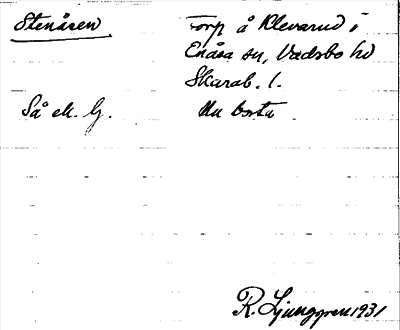 Stenåsen Torp å Klevarud i
Enåsa sn, Vadsbo hd
Skarab. l.
Så ek. G. Nu borta
R. Ljunggren 1931